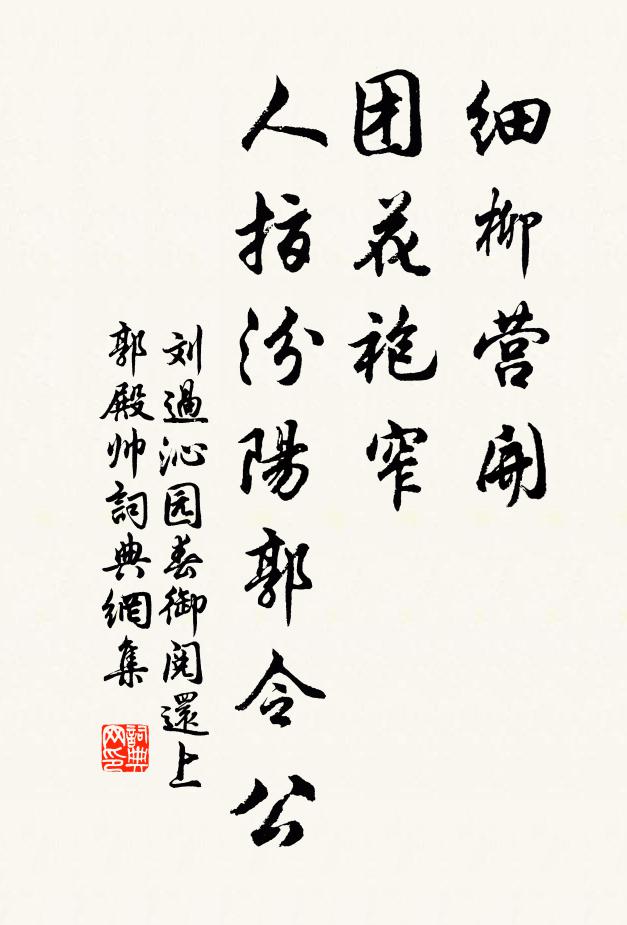 细柳营開
团花袍窄
人指汾陽郭令公
刘過沁园春御阅還上
郭殿帅詞典網集
詞典网印